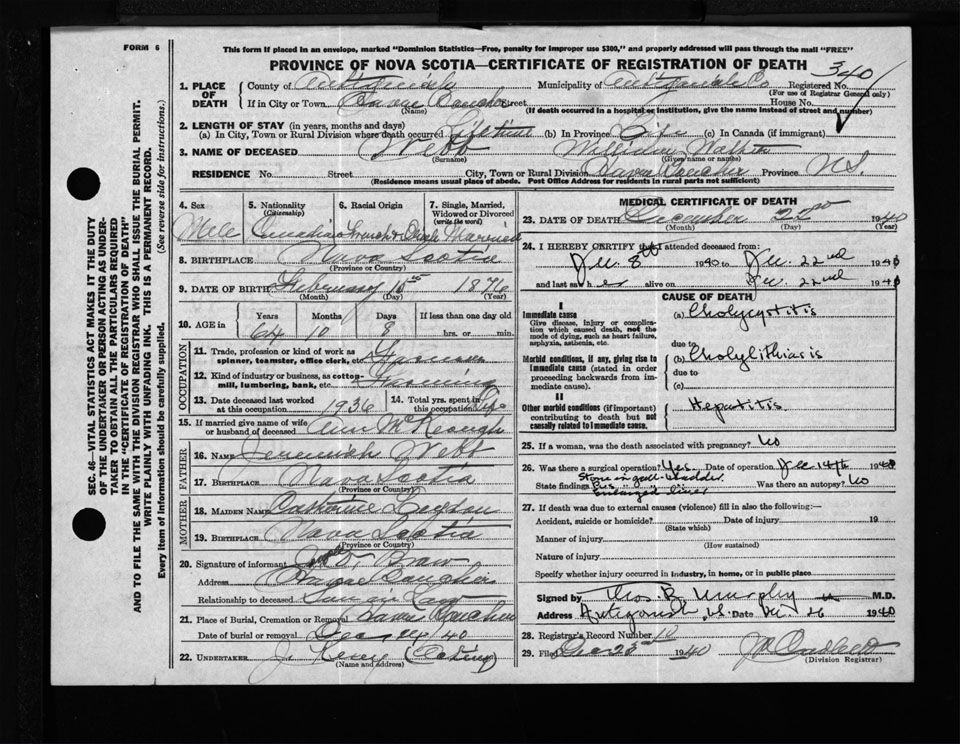 FORM 6
This form if placed in an envelope, marked "Dominion Statistics—Free, penalty for improper use $300," and properly addressed will pass through the mail "FREE"
PROVINCE OF NOVA SCOTIA—CERTIFICATE OF REGISTRATION OF DEATH
340
1. PLACE OF DEATH
County of Antigonish Municipality of Antigonish Co Registered No.
(For use of Registrar General only)
If in City or Town Havre Boucher Street House No.
(Name) (If death occurred in a hospital or institution, give the name instead of street and number)
2. LENGTH OF STAY (in years, months and days)
(a) In City, Town or Rural Division where death occurred Lifetime (b) In Province Life (c) In Canada (if immigrant)
3. NAME OF DECEASED Webb
(Surname) (Given name or names)
RESIDENCE No. Street City, Town or Rural Division Havre Boucher Province N.S.
(Residence means usual place of abode. Post Office Address for residents in rural parts not sufficient)
4. Sex
Male
5. Nationality
(Citizenship)
Canadian
6. Racial Origin
7. Single, Married, Widowed or Divorced
(write the word)
Married
8. BIRTHPLACE Nova Scotia
(Province or Country)
9. DATE OF BIRTH February 1876
(Month) (Day) (Year)
10. AGE in
Years Months Days If less than one day old
64 10 8 hrs. or min.
OCCUPATION
11. Trade, profession or kind of work as spinner, teamster, office clerk, etc.
12. Kind of industry or business, as cotton-mill, lumbering, bank, etc. Farming
13. Date deceased last worked at this occupation 1936
14. Total yrs. spent in this occupation Life
15. If married give name of wife or husband of deceased Ann McKeough
FATHER
16. NAME Jeremiah Webb
17. BIRTHPLACE Nova Scotia
(Province or Country)
MOTHER
18. MAIDEN NAME Catherine
19. BIRTHPLACE Nova Scotia
(Province or Country)
20. Signature of informant
Address Havre Boucher
Relationship to deceased Son in Law
21. Place of Burial, Cremation or Removal Havre Boucher
Date of burial or removal Dec 24/40
22. UNDERTAKER J.
(Name and address)
MEDICAL CERTIFICATE OF DEATH
23. DATE OF DEATH December 22nd 1940
(Month) (Day) (Year)
24. I HEREBY CERTIFY that I attended deceased from:
Dec. 8th 1940 to Dec. 22nd 194
and last saw h alive on Dec. 22nd 194
CAUSE OF DEATH
I
Immediate cause
Give disease, injury or complication which caused death, not the mode of dying, such as heart failure, asphyxia, asthenia, etc.
(a) Cholycystitis
due to
Morbid conditions, if any, giving rise to immediate cause (stated in order proceeding backwards from immediate cause).
(b) Cholylithiasis
due to
(c)
II
Other morbid conditions (if important) contributing to death but not causally related to immediate cause.
Hepatitis.
25. If a woman, was the death associated with pregnancy? No
26. Was there a surgical operation? Yes. Date of operation Dec 14th 1940
State findings Stone in gall-bladder
Pus " " "
enlarged liver
Was there an autopsy? No
27. If death was due to external causes (violence) fill in also the following:—
Accident, suicide or homicide? Date of injury 19
(State which)
Manner of injury
(How sustained)
Nature of injury
Specify whether injury occurred in industry, in home, or in public place
Signed by Thos B Murphy M.D.
Address Antigonish, N.S. Date Dec. 26 1940
28. Registrar's Record Number 10
29. Filed Dec 1940
(Division Registrar)
SEC. 46—VITAL STATISTICS ACT MAKES IT THE DUTY
OF THE UNDERTAKER OR PERSON ACTING AS UNDER-
TAKER TO OBTAIN ALL THE PARTICULARS REQUIRED
IN THE "CERTIFICATE OF REGISTRATION OF DEATH"
AND TO FILE THE SAME WITH THE DIVISION REGISTRAR WHO SHALL ISSUE THE BURIAL PERMIT.
WRITE PLAINLY WITH UNFADING INK. THIS IS A PERMANENT RECORD.
Every item of Information should be carefully supplied. (See reverse side for instructions.)